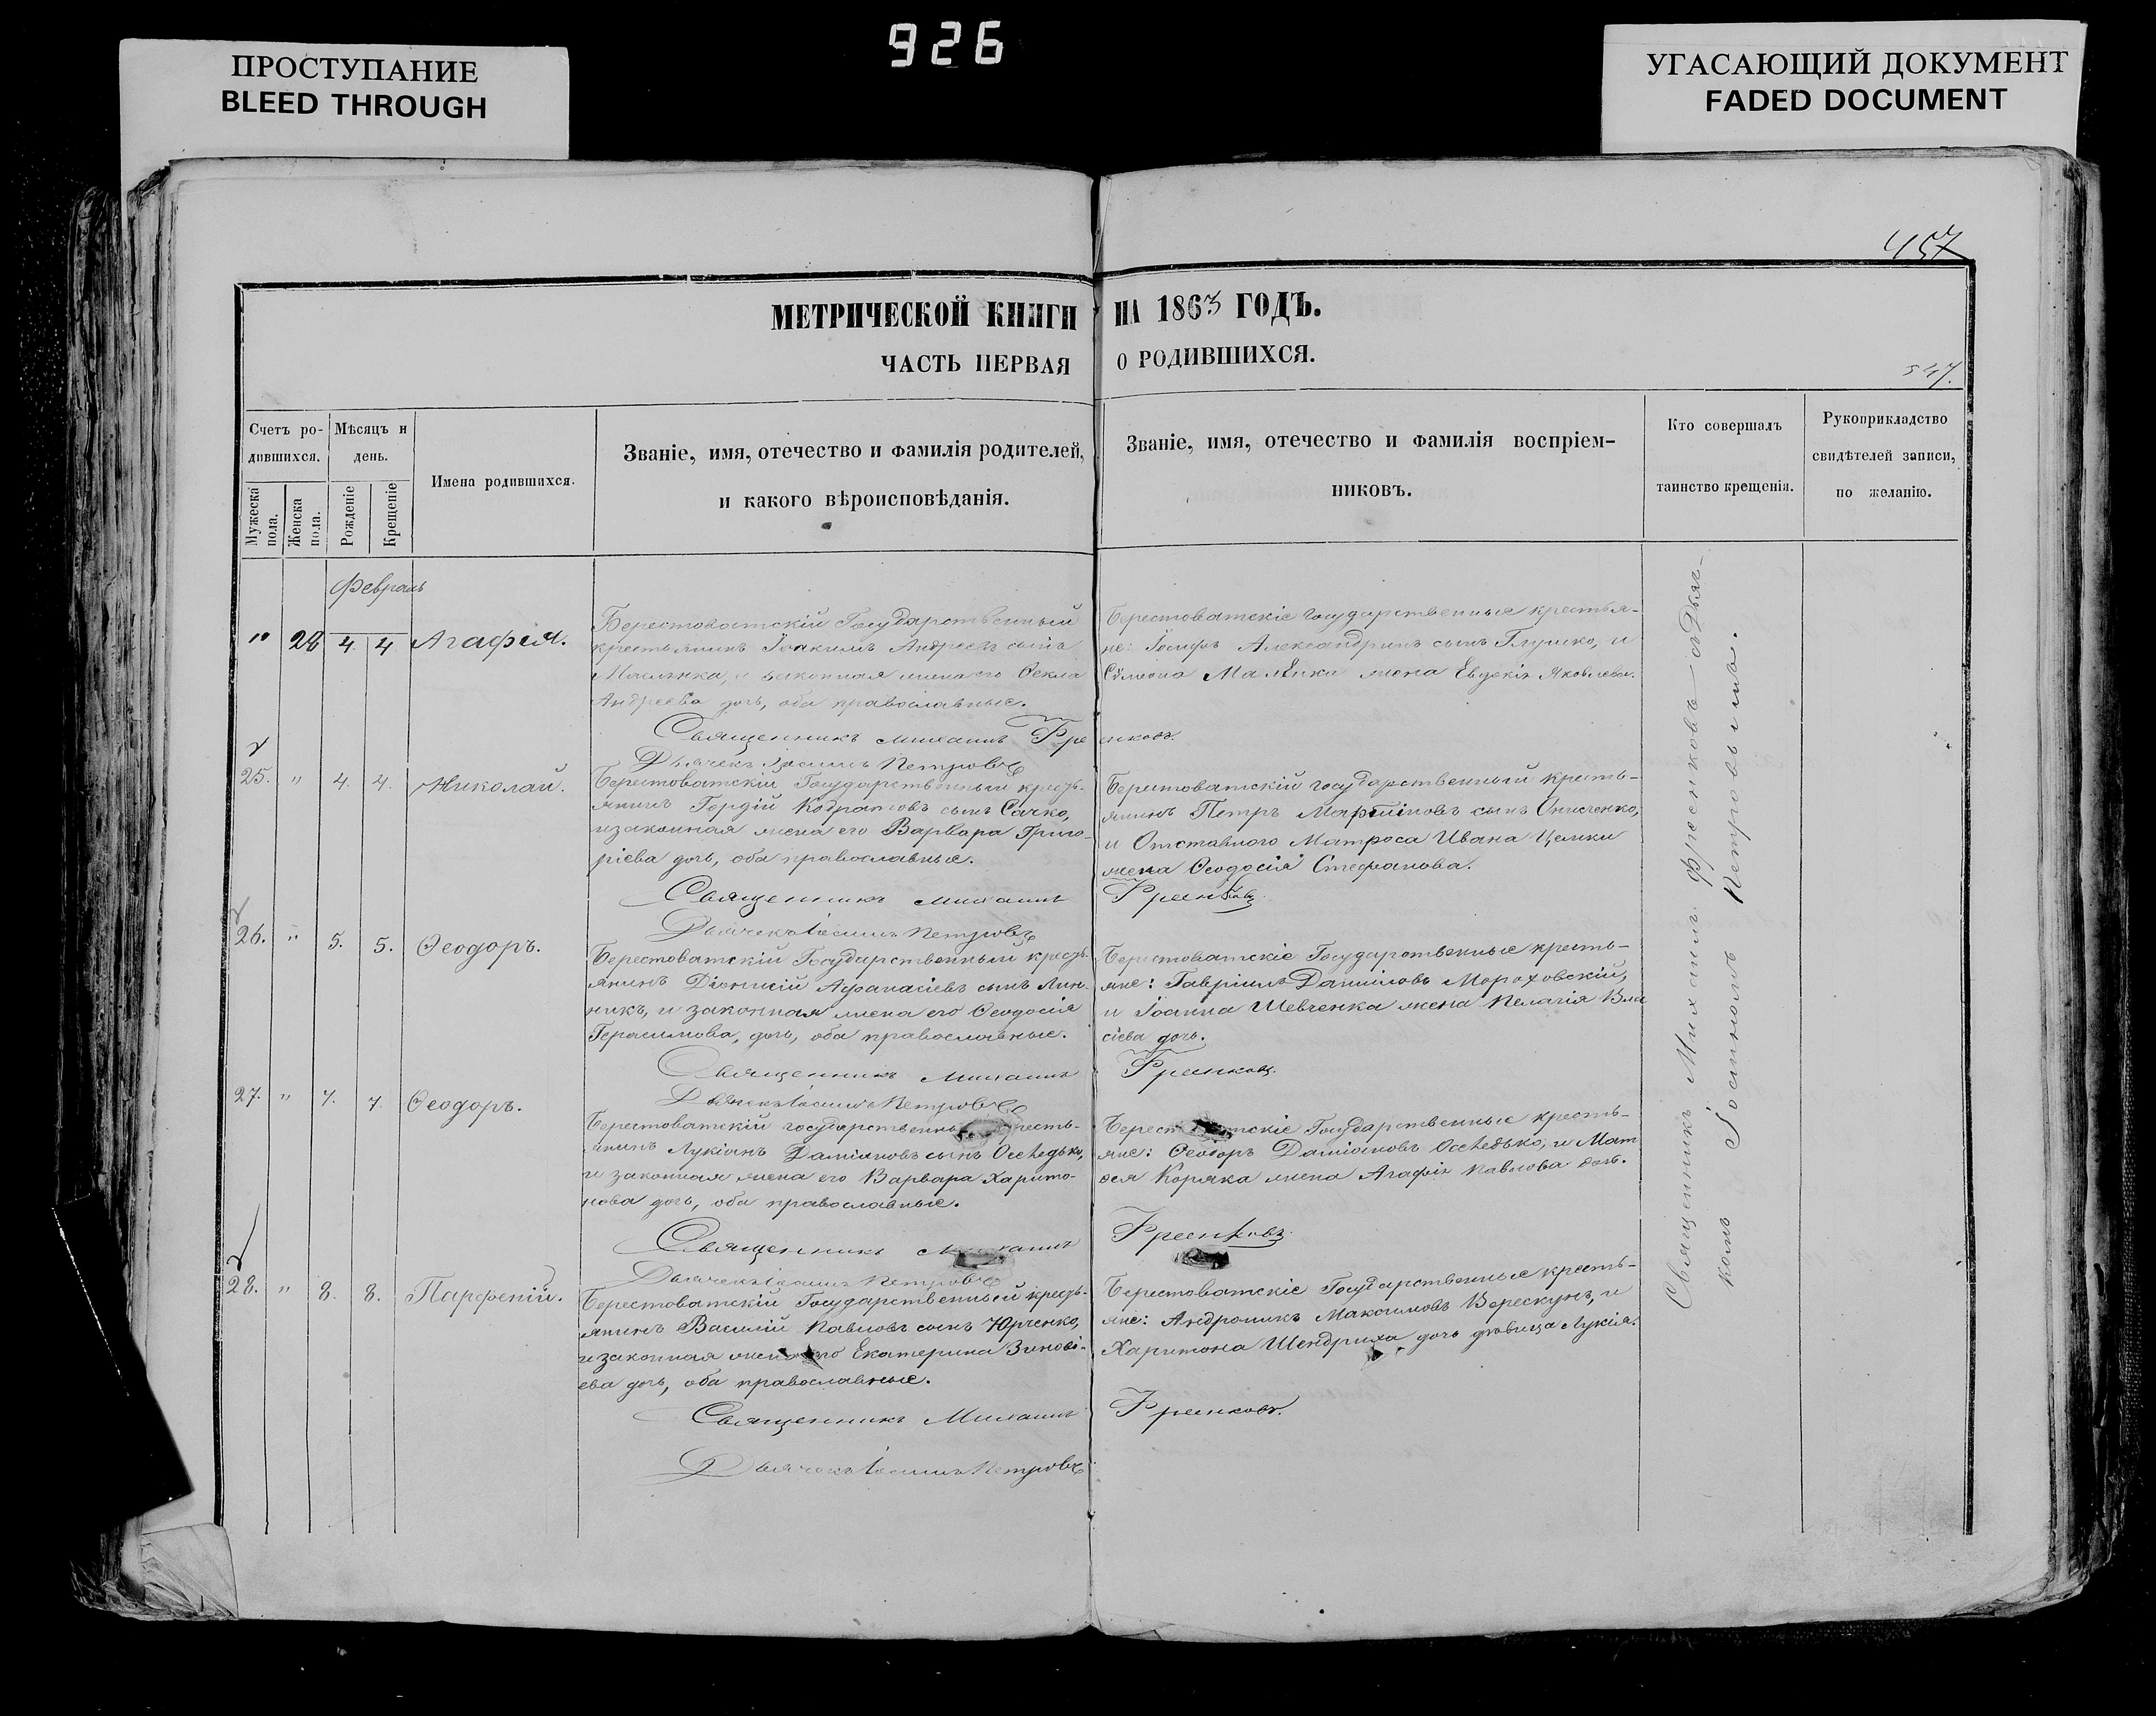 926
ПРОСТУПАНИЕ
BLEED THROUGH
УГАСАЮЩИЙ ДОКУМЕНТ
FADED DOCUMENT
457
МЕТРИЧЕСКОЙ КНИГИ НА 1863 ГОДЪ.
ЧАСТЬ ПЕРВАЯ О РОДИВШИХСЯ.
547.
Счетъ ро-
дившихся.
Мужеска
пола.
Женска
пола.
Мѣсяцъ и
день.
Рожденіе
Крещеніе
Имена родившихся.
Званіе, имя, отечество и фамилія родителей,
и какого вѣроисповѣданія.
Званіе, имя, отечество и фамилія воспріем-
никовъ.
Кто совершалъ
таинство крещенія.
Рукоприкладство
свидѣтелей записи,
по желанію.
Февраль
" 28 4 4 Агафія.
Берестоватскій Государственный
крестьянинъ Іоакимъ Андреевъ сынъ
и законная жена его Ѳекла
Андреева дочь, оба православные.
Берестоватскіе государственные крестья-
не: Іосифъ Александринъ сынъ Глушко, и
Сѷмеона жена Евдокія Яковлева.
Священникъ Михаилъ Френковъ.
Дьячекъ Іоаннъ Петровъ
25. " 4. 4. Николай.
Берестоватскій Государственный кресть-
янинъ Гордій Кодратовъ сынъ Сачко,
и законная жена его Варвара Григо-
ріева дочь, оба православные.
Берестоватскій государственный кресть-
янинъ Петръ Мартиновъ сынъ Онисченко,
и Отставного Матроса Ивана Целики
жена Ѳеодосія Стефанова.
Священникъ Михаилъ Френковъ
Дьячекъ Іоаннъ Петровъ
26. " 5. 5. Ѳеодоръ.
Берестоватскій Государственный кресть-
янинъ Діонисій Афанасіевъ сынъ Лин-
никъ, и законная жена его Ѳеодосія
Герасимова, дочь, оба православные.
Берестоватскіе Государственные кресть-
яне: Гавріилъ Даніиловъ Мороховскій,
и Іоанна Шевченка жена Пелагія Вла
сіева дочь.
Священникъ Михаилъ Френковъ.
Дьячекъ Іоаннъ Петровъ
27. " 7. 7. Ѳеодоръ.
Берестоватскій государственный кресть-
янинъ Лукіанъ Даміановъ сынъ Осѣедько,
и законная жена его Варвара Харито-
нова дочь, оба православные.
Берестоватскіе Государственные кресть-
яне: Ѳеодоръ Даміановъ Осѣедько, и Мат
ѳея Коряка жена Агафія Павлова дочь.
Священникъ Михаилъ Френковъ.
Дьячекъ Іоаннъ Петровъ
28. " 8. 8. Парфеній.
Берестоватскій Государственный кресть-
янинъ Василій Павловъ сынъ Юрченко,
и законная жена его Екатерина Зинові-
ева дочь, оба православные.
Берестоватскіе Государственные кресть-
яне: Андроникъ Максимовъ Верескунъ, и
Харитона Шендрика дочь дѣвица Лукія.
Священникъ Михаилъ Френковъ.
Дьячекъ Іоаннъ Петровъ
Священникъ Михаилъ Френковъ съ Дьяч-
комъ Іоанномъ Петровымъ.